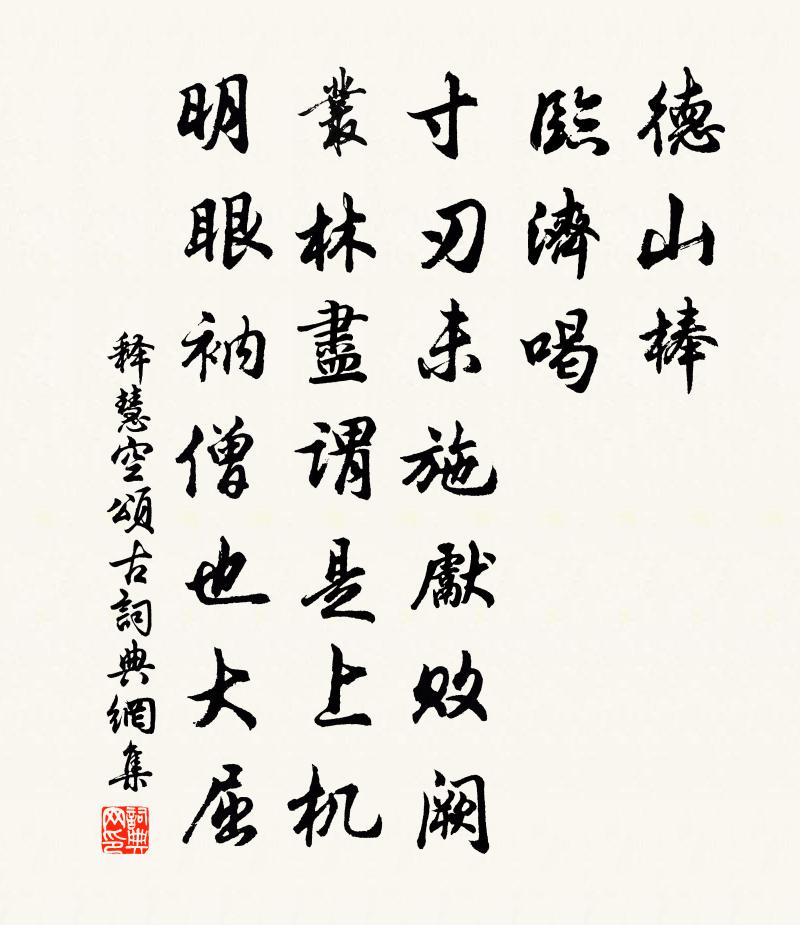 德山棒
臨濟喝
寸刃未施獻敗阙
叢林盡謂是上机
明眼衲僧也大屈
释慧空頌古詞典網集
詞典網印